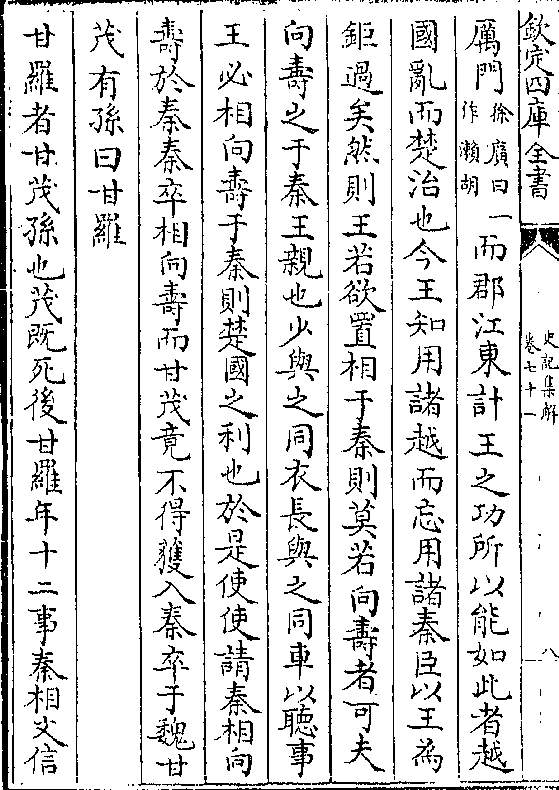 欽定四庫全書
史記集解
卷七十一
八
厲門徐廣曰一作瀨胡而郡江東計王之功所以能如此者越
國亂而楚治也今王知用諸越而忘用諸秦臣以王為
鉅過矣然則王若欲置相于秦則莫若向壽者可夫
向壽之于秦王親也少與之同衣長與之同車以聽事
王必相向壽于秦則楚國之利也於是使使請秦相向
壽於秦秦卒相向壽而甘茂竟不得獲入秦卒于魏甘
茂有孫曰甘羅
甘羅者甘茂孫也茂既死後甘羅年十二事秦相文信